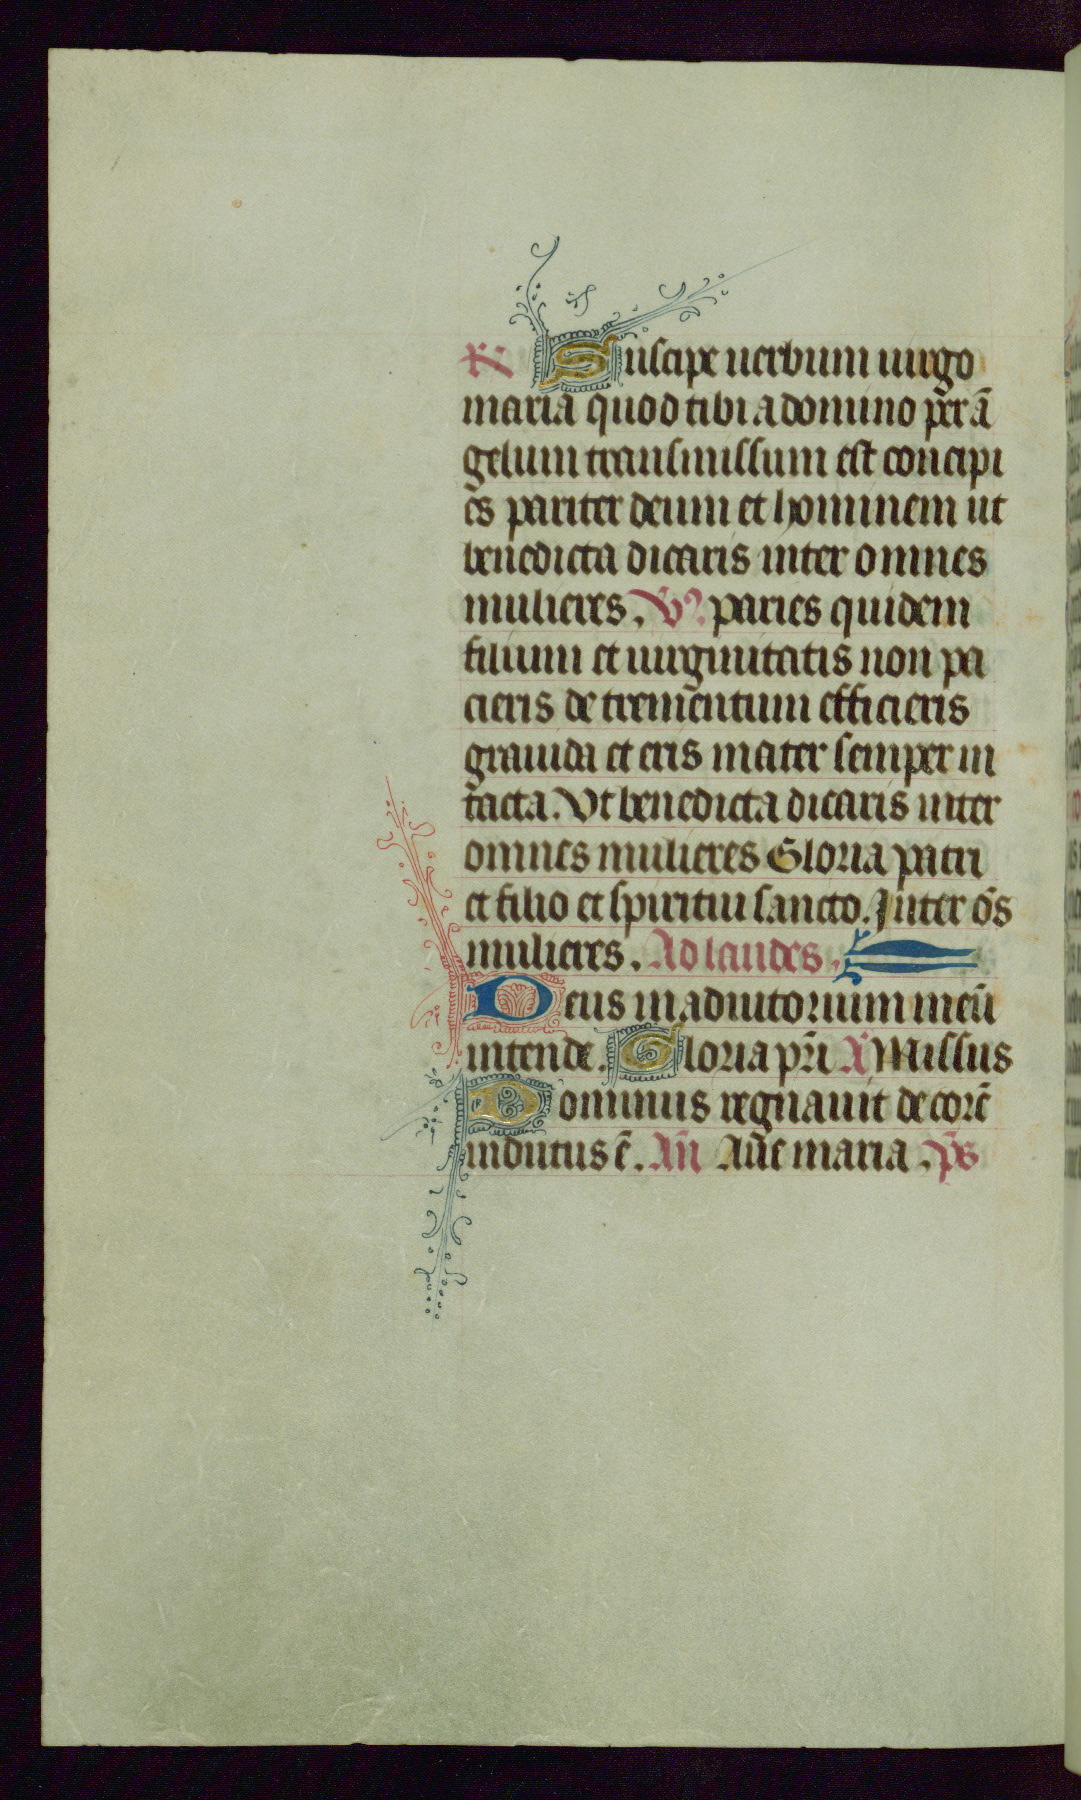 R Suscipe uerbum uirgo
maria quod tibi a domino per ā
gelum transmissum est concipi
es pariter deum et hominem ut
benedicta dicaris inter omnes
mulieres. V paries quidem
filium et uirginitatis non pa
cieris detrementum efficieris
grauida et eris mater semper in
tacta. Vt benedicta dicaris inter
omnes mulieres Gloria patri
et filio et spiritui sancto. Inter oēs
mulieres. Ad laudes.
Deus in adiutorium meū
intende. Gloria pr̄i A Missus
Dominus regnauit decorē
indutus ē. An̄ Aūe maria. p̄s